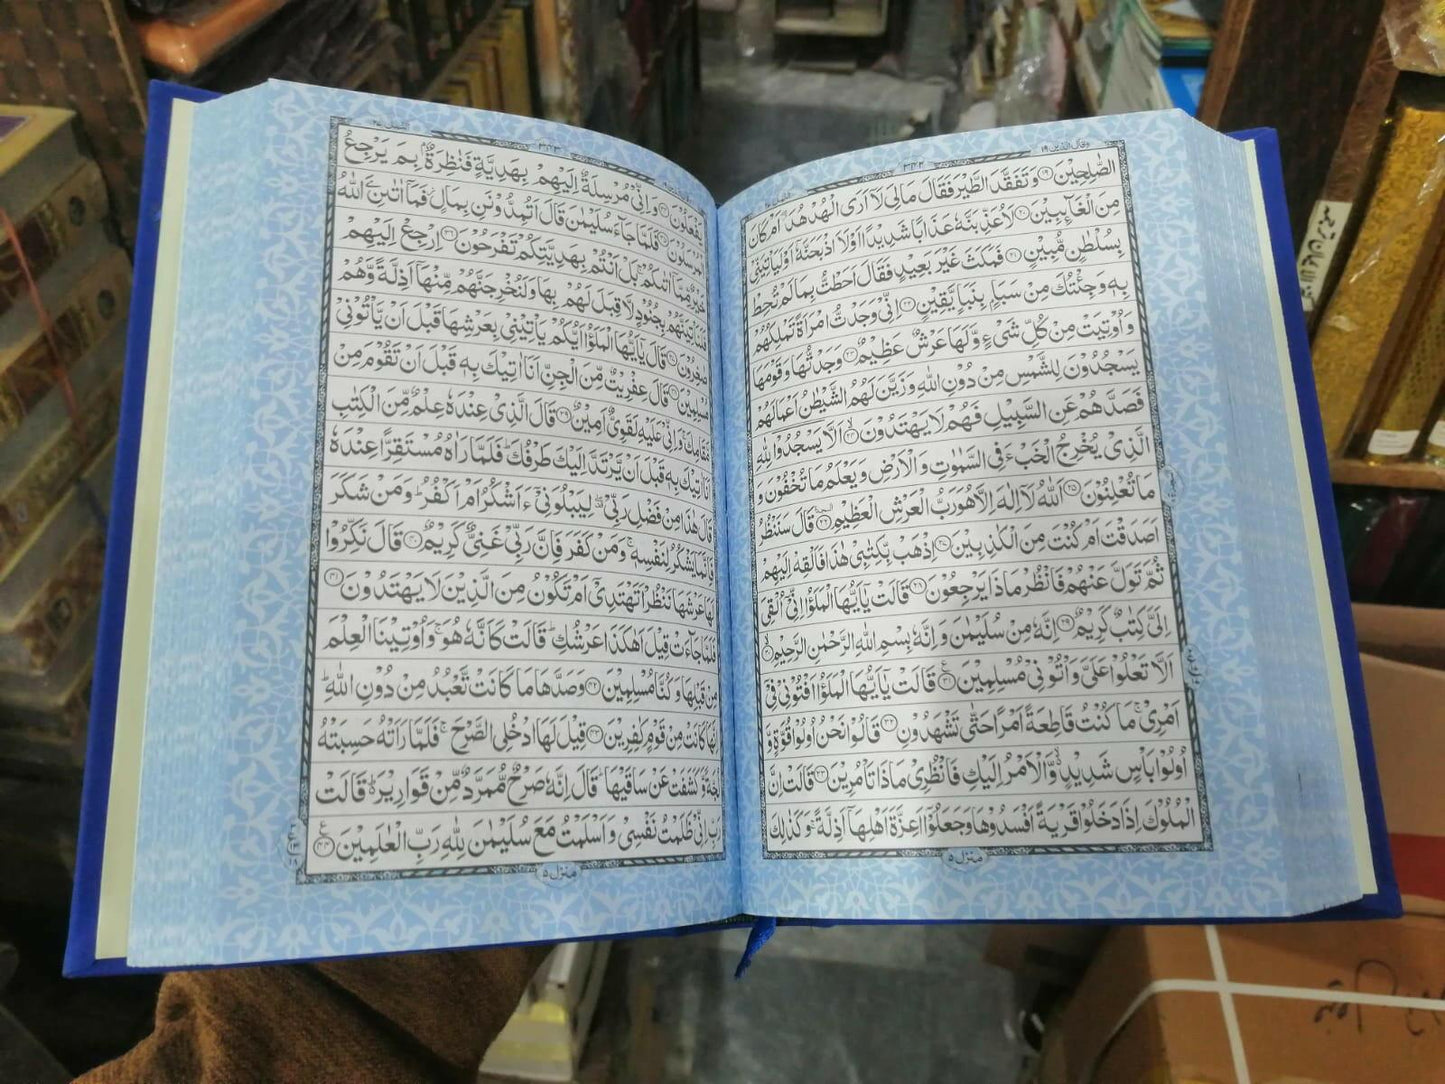 وقال الذین ۱۹
۳۴۲
الصّٰلِحِيْنَ ۝۱۹ وَتَفَقَّدَ الطَّيْرَ فَقَالَ مَالِيَ لَاۤ اَرَى الْهُدْهُدَ ۖ اَمْ كَانَ
مِنَ الْغَآئِبِيْنَ ۝۲۰ لَاُعَذِّبَنَّهٗ عَذَابًا شَدِيْدًا اَوْ لَا۟اَذْبَحَنَّهٗۤ اَوْ لَيَاْتِيَنِّيْ
بِسُلْطٰنٍ مُّبِيْنٍ ۝۲۱ فَمَكَثَ غَيْرَ بَعِيْدٍ فَقَالَ اَحَطْتُّ بِمَا لَمْ تُحِطْ
بِهٖ وَجِئْتُكَ مِنْ سَبَاٍۭ بِنَبَاٍ يَّقِيْنٍ ۝۲۲ اِنِّيْ وَجَدْتُّ امْرَاَةً تَمْلِكُهُمْ
وَاُوْتِيَتْ مِنْ كُلِّ شَيْءٍ وَّلَهَا عَرْشٌ عَظِيْمٌ ۝۲۳ وَجَدْتُّهَا وَقَوْمَهَا
يَسْجُدُوْنَ لِلشَّمْسِ مِنْ دُوْنِ اللّٰهِ وَزَيَّنَ لَهُمُ الشَّيْطٰنُ اَعْمَالَهُمْ
فَصَدَّهُمْ عَنِ السَّبِيْلِ فَهُمْ لَا يَهْتَدُوْنَ ۝۲۴ اَلَّا يَسْجُدُوْا لِلّٰهِ
الَّذِيْ يُخْرِجُ الْخَبْءَ فِي السَّمٰوٰتِ وَالْاَرْضِ وَيَعْلَمُ مَا تُخْفُوْنَ وَ
مَا تُعْلِنُوْنَ ۝۲۵ اَللّٰهُ لَاۤ اِلٰهَ اِلَّا هُوَ رَبُّ الْعَرْشِ الْعَظِيْمِ ۝۲۶ قَالَ سَنَنْظُرُ
اَصَدَقْتَ اَمْ كُنْتَ مِنَ الْكٰذِبِيْنَ ۝۲۷ اِذْهَبْ بِّكِتٰبِيْ هٰذَا فَاَلْقِهْ اِلَيْهِمْ
ثُمَّ تَوَلَّ عَنْهُمْ فَانْظُرْ مَاذَا يَرْجِعُوْنَ ۝۲۸ قَالَتْ يٰۤاَيُّهَا الْمَلَؤُا اِنِّيْۤ اُلْقِيَ
اِلَيَّ كِتٰبٌ كَرِيْمٌ ۝۲۹ اِنَّهٗ مِنْ سُلَيْمٰنَ وَاِنَّهٗ بِسْمِ اللّٰهِ الرَّحْمٰنِ الرَّحِيْمِ ۝۳۰
اَلَّا تَعْلُوْا عَلَيَّ وَاْتُوْنِيْ مُسْلِمِيْنَ ۝۳۱ قَالَتْ يٰۤاَيُّهَا الْمَلَؤُا اَفْتُوْنِيْ فِيْۤ
اَمْرِيْ ۚ مَا كُنْتُ قَاطِعَةً اَمْرًا حَتّٰى تَشْهَدُوْنِ ۝۳۲ قَالُوْا نَحْنُ اُولُوْا قُوَّةٍ وَّ
اُولُوْا بَاْسٍ شَدِيْدٍ ۙ وَّالْاَمْرُ اِلَيْكِ فَانْظُرِيْ مَاذَا تَاْمُرِيْنَ ۝۳۳ قَالَتْ اِنَّ
الْمُلُوْكَ اِذَا دَخَلُوْا قَرْيَةً اَفْسَدُوْهَا وَجَعَلُوْۤا اَعِزَّةَ اَهْلِهَاۤ اَذِلَّةً ۚ وَكَذٰلِكَ
منزل ۵
۳۴۳
يَفْعَلُوْنَ ۝۳۴ وَاِنِّيْ مُرْسِلَةٌ اِلَيْهِمْ بِهَدِيَّةٍ فَنٰظِرَةٌۢ بِمَ يَرْجِعُ
الْمُرْسَلُوْنَ ۝۳۵ فَلَمَّا جَآءَ سُلَيْمٰنَ قَالَ اَتُمِدُّوْنَنِ بِمَالٍ ۫ فَمَاۤ اٰتٰىنِ َۧ اللّٰهُ
خَيْرٌ مِّمَّاۤ اٰتٰىكُمْ ۚ بَلْ اَنْتُمْ بِهَدِيَّتِكُمْ تَفْرَحُوْنَ ۝۳۶ اِرْجِعْ اِلَيْهِمْ
فَلَنَاْتِيَنَّهُمْ بِجُنُوْدٍ لَّا قِبَلَ لَهُمْ بِهَا وَلَنُخْرِجَنَّهُمْ مِّنْهَاۤ اَذِلَّةً وَّهُمْ
صٰغِرُوْنَ ۝۳۷ قَالَ يٰۤاَيُّهَا الْمَلَؤُا اَيُّكُمْ يَاْتِيْنِيْ بِعَرْشِهَا قَبْلَ اَنْ يَّاْتُوْنِيْ
مُسْلِمِيْنَ ۝۳۸ قَالَ عِفْرِيْتٌ مِّنَ الْجِنِّ اَنَا اٰتِيْكَ بِهٖ قَبْلَ اَنْ تَقُوْمَ مِنْ
مَّقَامِكَ ۚ وَاِنِّيْ عَلَيْهِ لَقَوِيٌّ اَمِيْنٌ ۝۳۹ قَالَ الَّذِيْ عِنْدَهٗ عِلْمٌ مِّنَ الْكِتٰبِ
اَنَا اٰتِيْكَ بِهٖ قَبْلَ اَنْ يَّرْتَدَّ اِلَيْكَ طَرْفُكَ ؕ فَلَمَّا رَاٰهُ مُسْتَقِرًّا عِنْدَهٗ
قَالَ هٰذَا مِنْ فَضْلِ رَبِّيْ ۖ لِيَبْلُوَنِيْۤ ءَاَشْكُرُ اَمْ اَكْفُرُ ؕ وَمَنْ شَكَرَ
فَاِنَّمَا يَشْكُرُ لِنَفْسِهٖ ۚ وَمَنْ كَفَرَ فَاِنَّ رَبِّيْ غَنِيٌّ كَرِيْمٌ ۝۴۰ قَالَ نَكِّرُوْا
لَهَا عَرْشَهَا نَنْظُرْ اَتَهْتَدِيْۤ اَمْ تَكُوْنُ مِنَ الَّذِيْنَ لَا يَهْتَدُوْنَ ۝۴۱
فَلَمَّا جَآءَتْ قِيْلَ اَهٰكَذَا عَرْشُكِ ؕ قَالَتْ كَاَنَّهٗ هُوَ ۚ وَاُوْتِيْنَا الْعِلْمَ
مِنْ قَبْلِهَا وَكُنَّا مُسْلِمِيْنَ ۝۴۲ وَصَدَّهَا مَا كَانَتْ تَّعْبُدُ مِنْ دُوْنِ اللّٰهِ ؕ
اِنَّهَا كَانَتْ مِنْ قَوْمٍ كٰفِرِيْنَ ۝۴۳ قِيْلَ لَهَا ادْخُلِي الصَّرْحَ ۚ فَلَمَّا رَاَتْهُ حَسِبَتْهُ
لُجَّةً وَّكَشَفَتْ عَنْ سَاقَيْهَا ؕ قَالَ اِنَّهٗ صَرْحٌ مُّمَرَّدٌ مِّنْ قَوَارِيْرَ ؕ قَالَتْ
رَبِّ اِنِّيْ ظَلَمْتُ نَفْسِيْ وَاَسْلَمْتُ مَعَ سُلَيْمٰنَ لِلّٰهِ رَبِّ الْعٰلَمِيْنَ ۝۴۴
منزل ۵